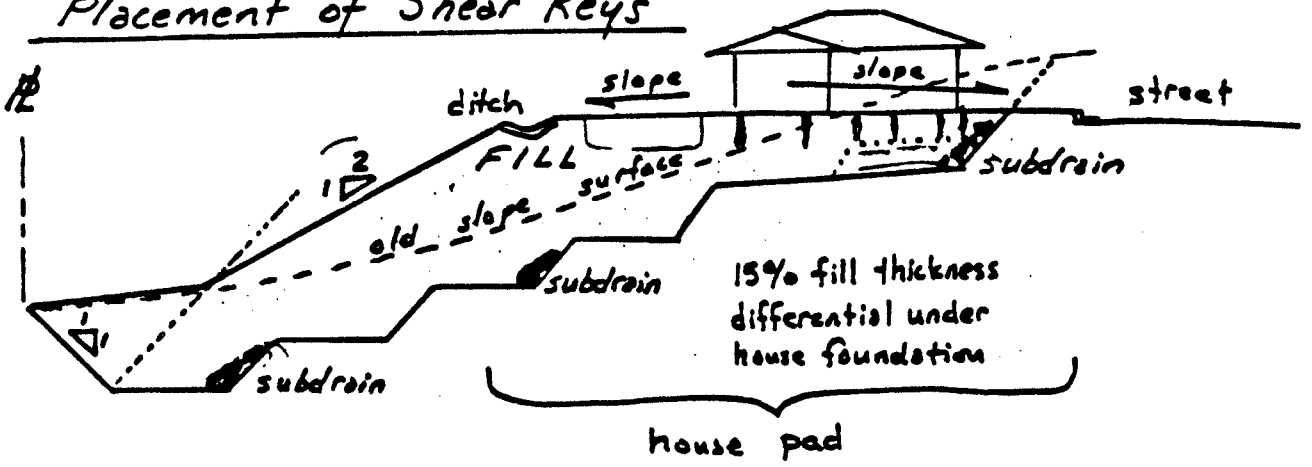 Placement of Shear Keys
PL
ditch
slope
slope
street
FILL
2
1
old slope surface
subdrain
subdrain
subdrain
1
1
15% fill thickness
differential under
house foundation
house pad